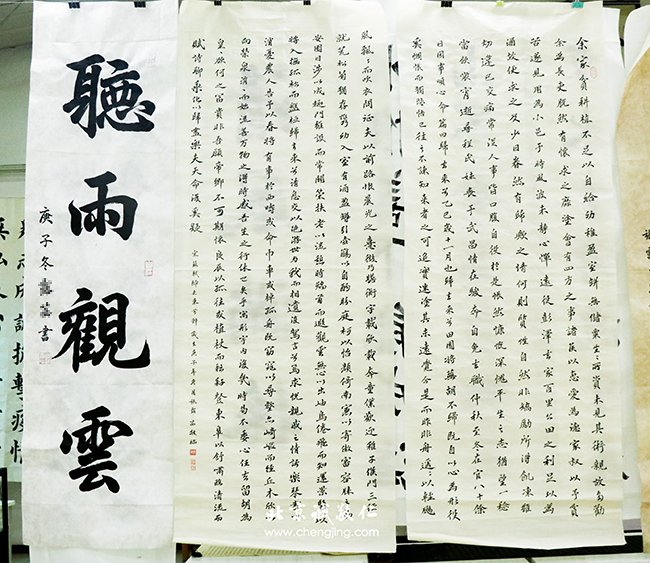 余家貧耕植不足以自給幼稚盈室缾無儲粟生生所資未見其術親故多勸
余為長吏脫然有懷求之靡途會有四方之事諸侯以惠愛為德家叔以予貧
苦遂見用為小邑于時風波未靜心憚遠役彭澤去家百里公田之利足以為
酒故便求之及少日眷然有歸歟之情何則質性自然非矯勵所得飢凍雖
切違己交病嘗從人事皆口腹自役於是悵然慷慨深愧平生之志猶望一稔
當斂裳宵逝尋程氏妹喪于武昌情在駿奔自免去職仲秋至冬在官八十餘
日因事順心命篇曰歸去來兮乙巳歲十一月也歸去來兮田園將蕪胡不歸既自以心為形役
奚惆悵而獨悲悟已往之不諫知來者之可追實迷途其未遠覺今是而昨非舟遙遙以輕颺
風飄飄而吹衣問征夫以前路恨晨光之熹微乃瞻衡宇載欣載奔僮僕歡迎稚子候門三徑
就荒松菊猶存攜幼入室有酒盈罇引壺觴以自酌眄庭柯以怡顏倚南窗以寄傲審容膝之易
安園日涉以成趣門雖設而常關策扶老以流憩時矯首而遐觀雲無心以出岫鳥倦飛而知還景翳翳以
將入撫孤松而盤桓歸去來兮請息交以絕游世與我而相遺復駕言兮焉求悅親戚之情話樂琴書以
消憂農人告予以春將有事於西疇或命巾車或棹孤舟既窈窕以尋壑亦崎嶇而經丘木欣欣以
向榮泉涓涓而始流善萬物之得時感吾生之行休已矣乎寓形宇內復幾時曷不委心任去留胡為遑
遑欲何之富貴非吾願帝鄉不可期懷良辰以孤往或植杖而耘耔登東皋以舒嘯臨清流而
賦詩聊乘化以歸盡樂夫天命復奚疑
聽雨觀雲
庚子冬 書
北京誠敬仁
www.chengjing.com